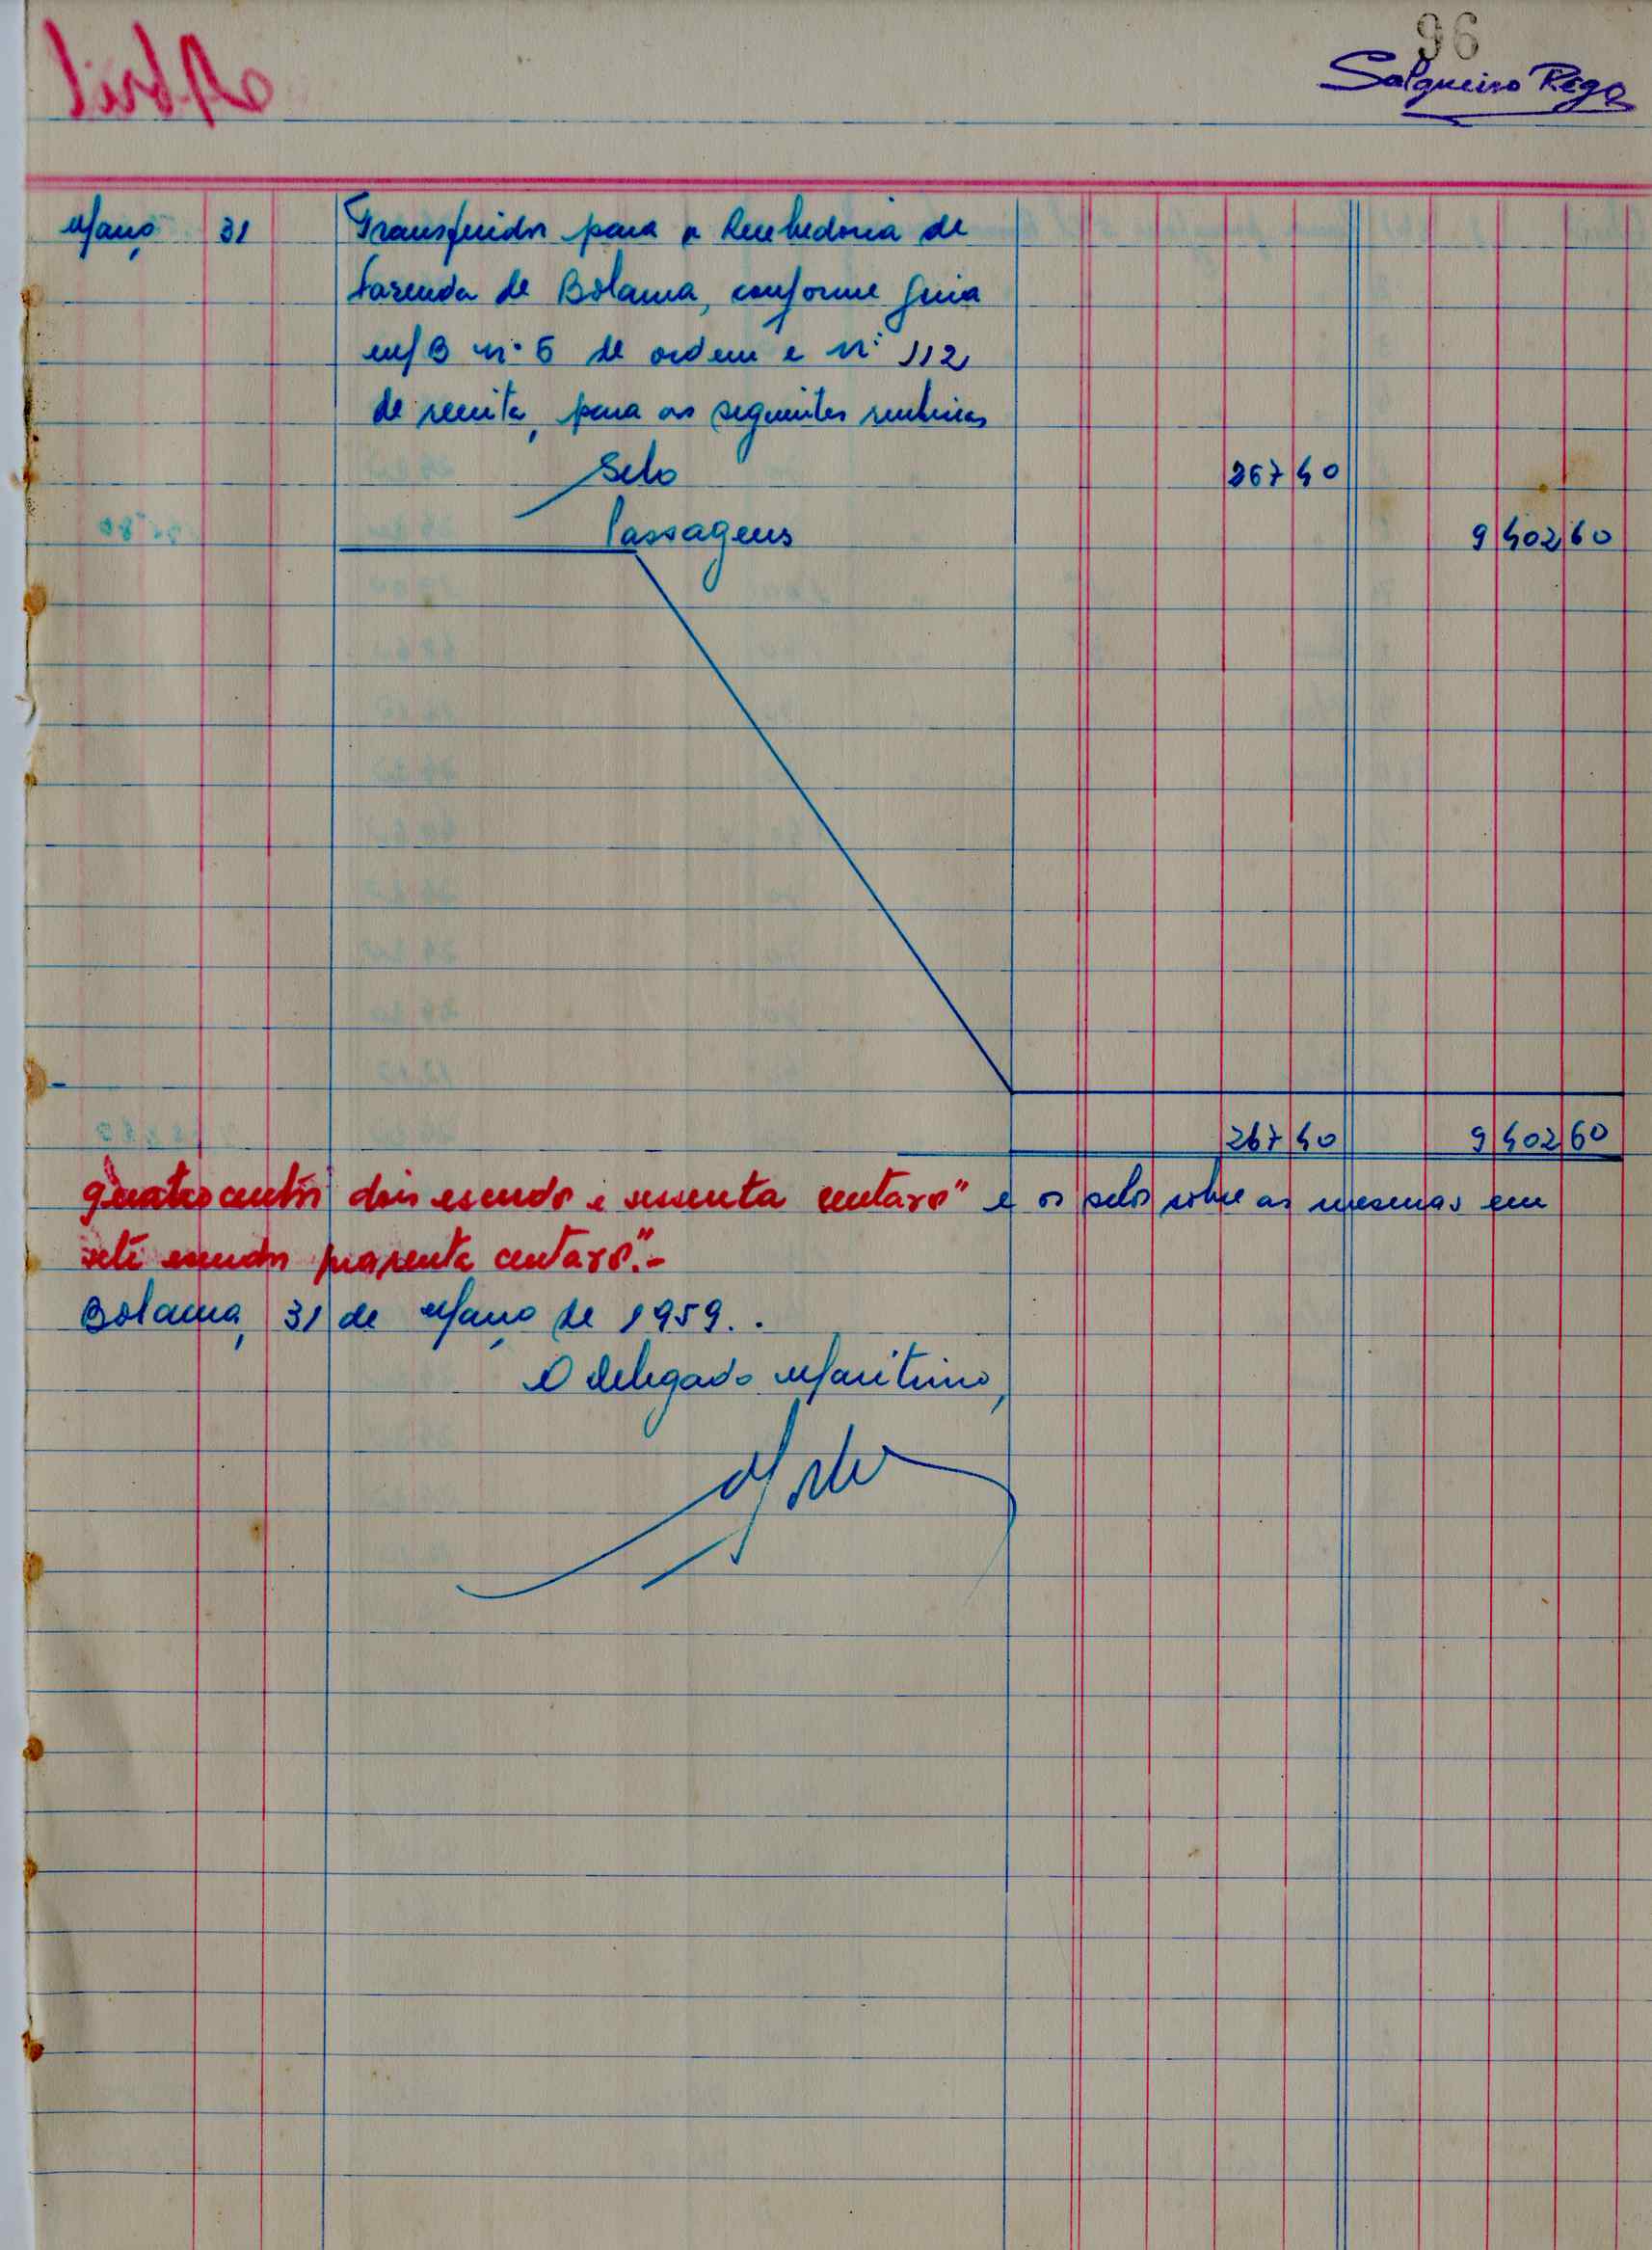 96
Salgueiro Rego
Março 31 Transferidos para a Recebedoria de
Fazenda de Bolama, conforme guia
m/B nº 5 de ordem e nº 112
de receita, para as seguintes rubricas
Selo 267 40
Passagens 9 402 60
267 40 9 402 60
quatrocentos dois escudos e sessenta centavos" e os selos sobre as mesmas em
sete escudos quarenta centavos".-
Bolama, 31 de Março de 1959..
O Delegado Marítimo,